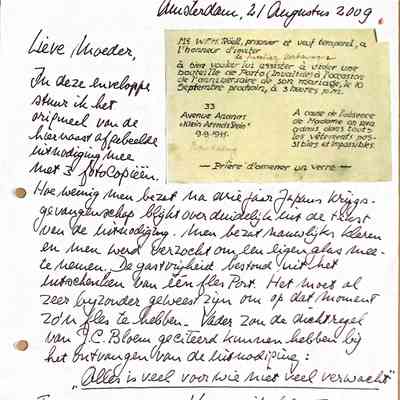 Amsterdam, 21 Augustus 2009.
Lieve Moeder,
In deze enveloppe
stuur ik het
origineel van de
hiernaast afgebeelde
uitnodiging mee
met 3 fotocopieën.
Mr. W.F.H. Röell, prisonier et veuf temporel, a
l'honneur d'inviter
à bien vouloir lui assister à vider une
bouteille de Porto (Invalide) à l'occasion
de l'anniversaire de son mariage, le 10
Septembre prochain, à 5 heures p.m.
33
Avenue Ananas
"Klein Arendsstein"
9.9.1945.
A cause de l'absence
de Madame on sera
admis dans touts
les vêtements pos-
sibles et impossibles.
— Prière d'amener un verre —
Hoe weinig men bezat na drie jaar Japans krijgs-
gevangenschap blijkt overduidelijk uit de tekst
van de uitnodiging. Men bezat nauwelijks kleren
en men werd verzocht om een eigen glas mee-
te nemen. De gastvrijheid bestond uit het
inschenken van één fles Port. Het moet al
zeer byzonder geweest zijn om op dat moment
zo'n fles te hebben. Vader zou de dichtregel
van J.C. Bloem geciteerd kunnen hebben bij
het ontvangen van de uitnodiging:
"Alles is veel voor wie niet veel verwacht"